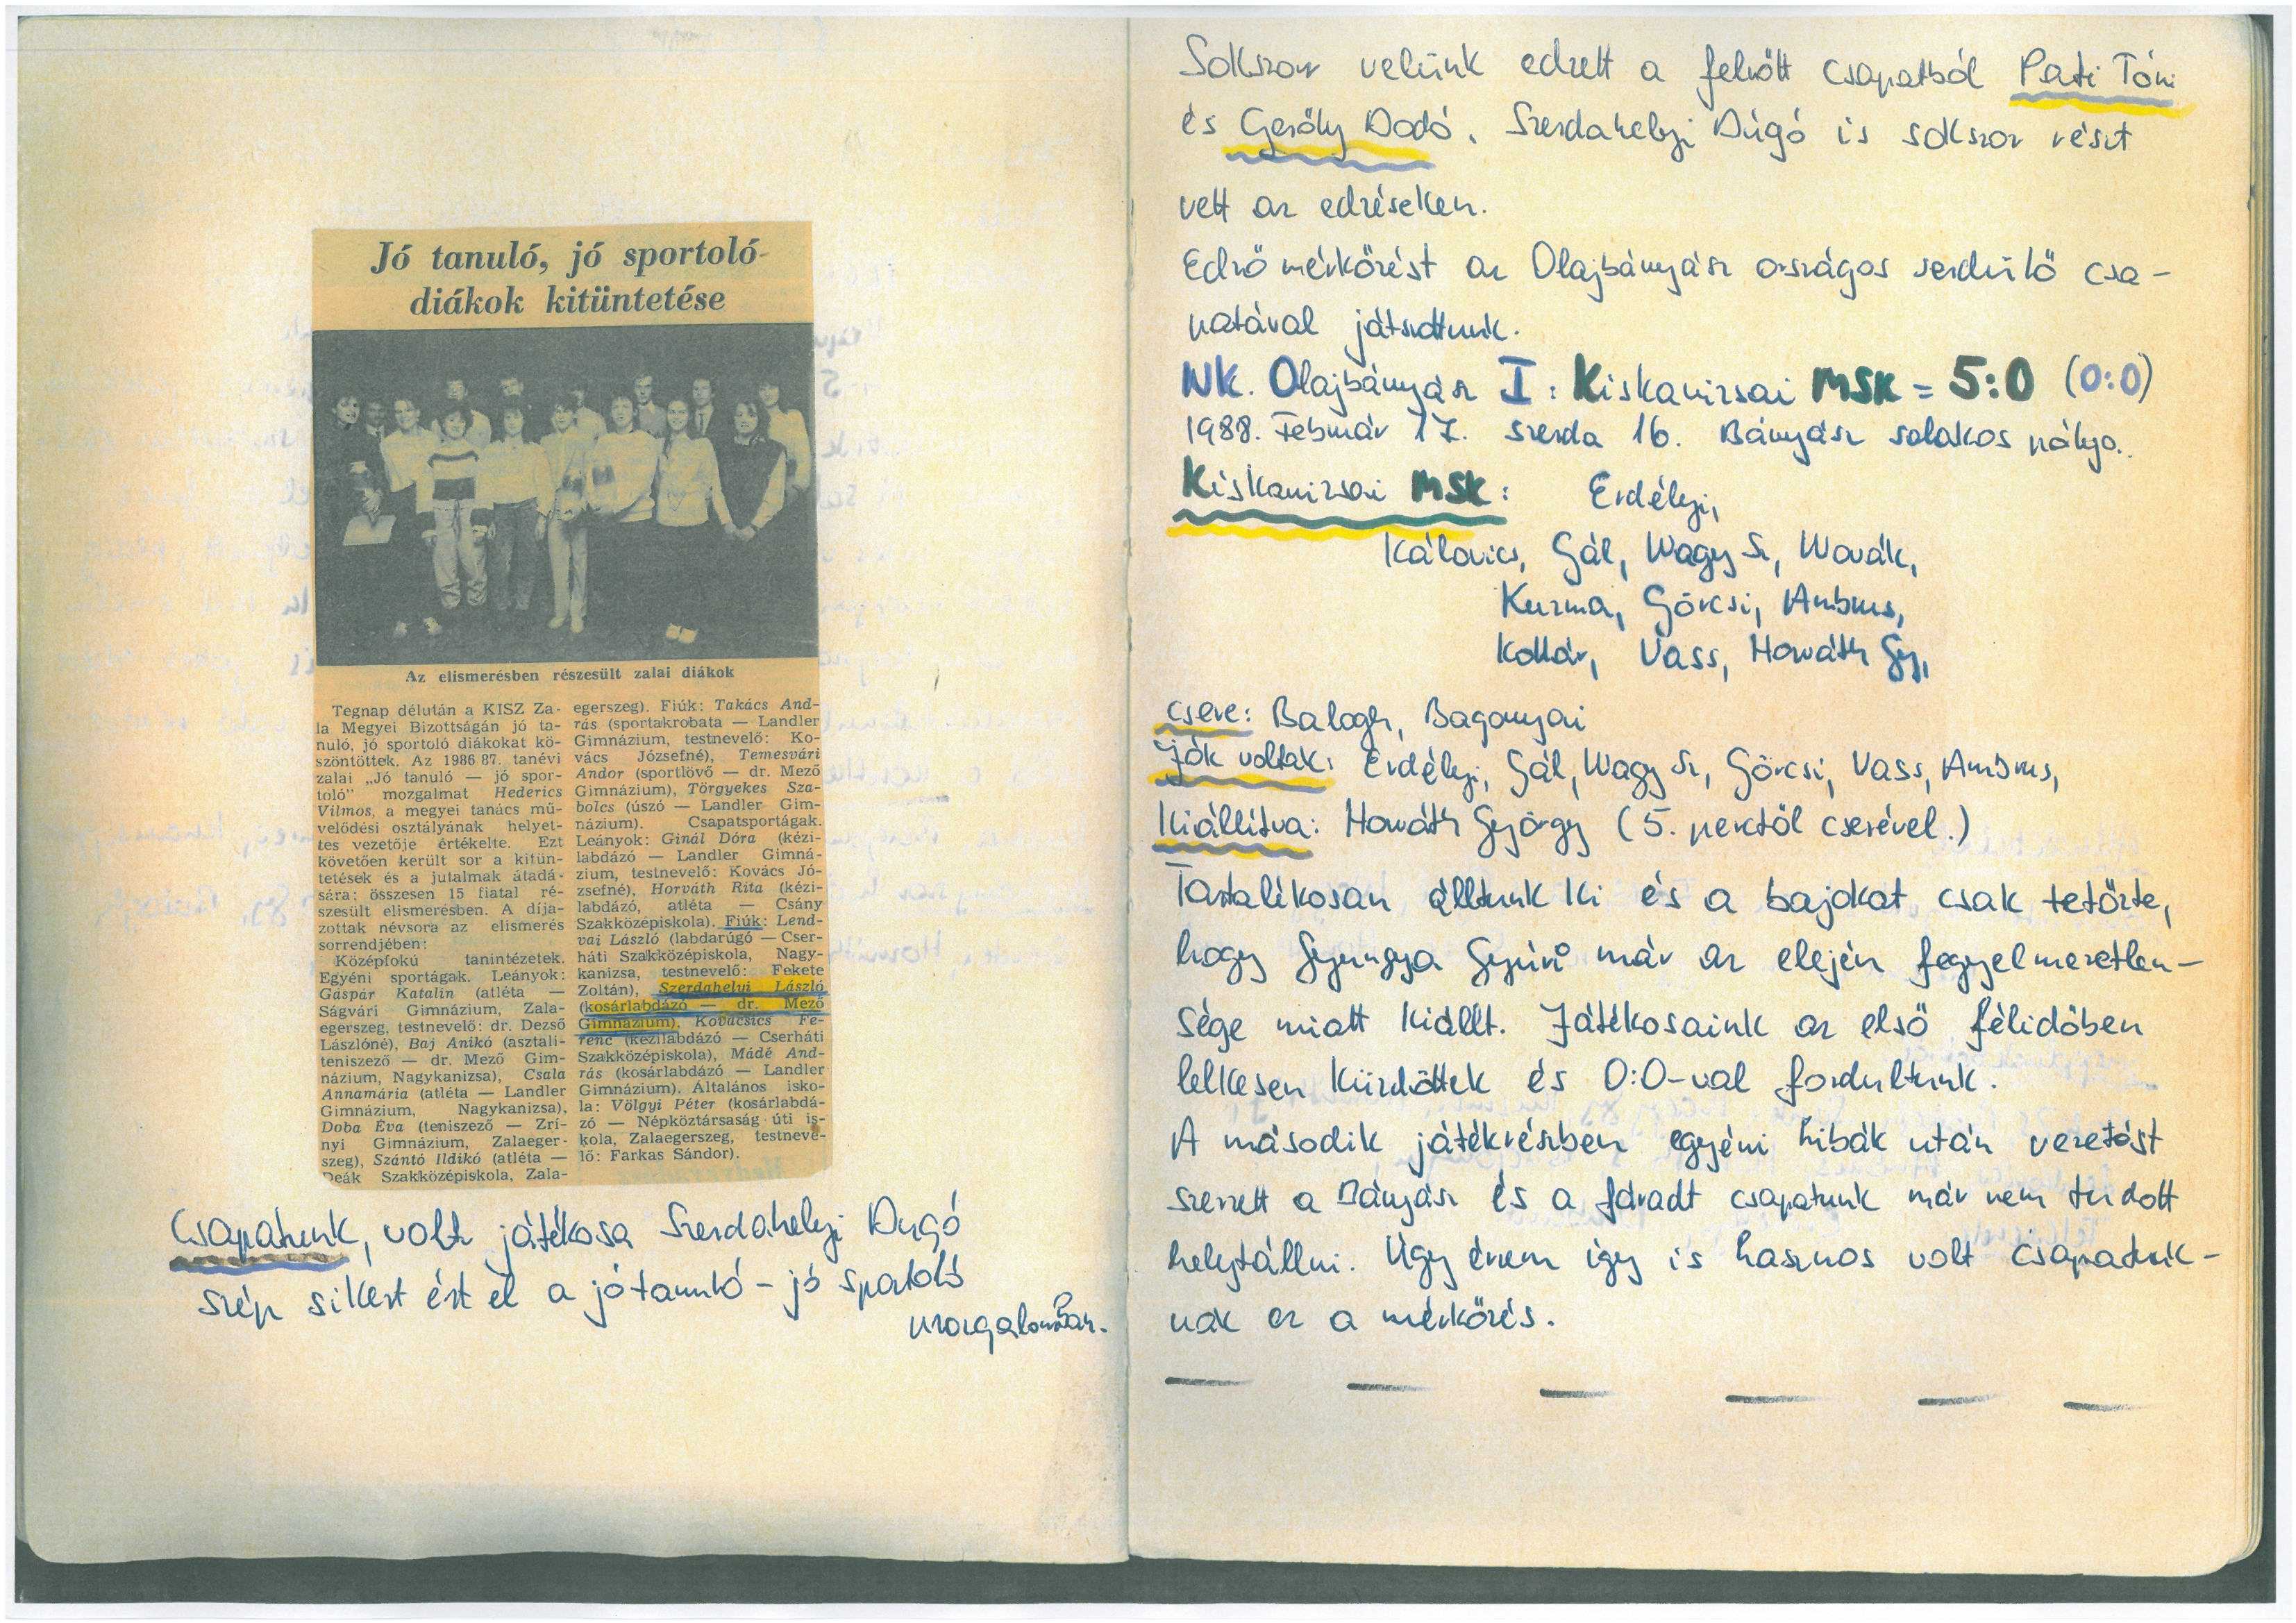 Jó tanuló, jó sportoló-
diákok kitüntetése
Az elismerésben részesült zalai diákok
Tegnap délután a KISZ Za-
la Megyei Bizottságán jó ta-
nuló, jó sportoló diákokat kö-
szöntöttek. Az 1986 87. tanévi
zalai „Jó tanuló — jó spor-
toló" mozgalmat Hederics
Vilmos, a megyei tanács mű-
velődési osztályának helyet-
tes vezetője értékelte. Ezt
követően került sor a kitün-
tetések és a jutalmak átadá-
sára: összesen 15 fiatal ré-
szesült elismerésben. A díja-
zottak névsora az elismerés
sorrendjében:
Középfokú tanintézetek.
Egyéni sportágak. Leányok:
Gáspár Katalin (atléta —
Ságvári Gimnázium, Zala-
egerszeg, testnevelő: dr. Dezső
Lászlóné), Baj Anikó (asztali-
teniszező — dr. Mező Gim-
názium, Nagykanizsa), Csala
Annamária (atléta — Landler
Gimnázium, Nagykanizsa),
Doba Éva (teniszező — Zrí-
nyi Gimnázium, Zalaeger-
szeg), Szántó Ildikó (atléta —
Deák Szakközépiskola, Zala-
egerszeg). Fiúk: Takács And-
rás (sportakrobata — Landler
Gimnázium, testnevelő: Ko-
vács Józsefné), Temesvári
Andor (sportlövő — dr. Mező
Gimnázium), Törgyekes Sza-
bolcs (úszó — Landler Gim-
názium). Csapatsportágak.
Leányok: Ginál Dóra (kézi-
labdázó — Landler Gimná-
zium, testnevelő: Kovács Jó-
zsefné), Horváth Rita (kézi-
labdázó, atléta — Csány
Szakközépiskola). Fiúk: Lend-
vai László (labdarúgó — Cser-
háti Szakközépiskola, Nagy-
kanizsa, testnevelő: Fekete
Zoltán), Szerdahelyi László
(kosárlabdázó — dr. Mező
Gimnázium), Kovácsics Fe-
renc (kézilabdázó — Cserháti
Szakközépiskola), Mádé And-
rás (kosárlabdázó — Landler
Gimnázium). Általános isko-
la: Völgyi Péter (kosárlabdá-
zó — Népköztársaság úti is-
kola, Zalaegerszeg, testneve-
lő: Farkas Sándor).
Csapatunk, volt játékosa Szerdahelyi Dugó
szép sikert ért el a jó tanuló - jó sportoló
mozgalomban.
Sokszor velünk edzett a felnőtt csapatból Pati Tóni
és Gerőly Dodó. Szerdahelyi Dúgó is sokszor részt
vett az edzéseken.
Edző mérkőzést az Olajbányász országos serdülő csa-
patával játszottunk.
NK. Olajbányász I : Kiskanizsai MSK = 5:0 (0:0)
1988. Február 17. szerda 16. Bányász salakos pálya.
Kiskanizsai MSK: Erdélyi,
Kálovics, Gál, Nagy Sz, Novák,
Kuzma, Görcsi, Ambrus,
Kollár, Vass, Horváth Gy,
csere: Balogh, Bagonyai
Jók voltak: Erdélyi, Gál, Nagy Sz, Görcsi, Vass, Ambrus,
Kiállítva: Horváth György (5. perctől cserével.)
Tartalékosan álltunk ki és a bajokat csak tetőzte,
hogy Gyungya Gyuri már az elején fegyelmezetlen-
sége miatt kiállt. Játékosaink az első félidőben
lelkesen küzdöttek és 0:0-val fordultunk.
A második játékrészben egyéni hibák után vezetést
szerzett a Bányász és a fáradt csapatunk már nem tudott
helytállni. Úgy érzem így is hasznos volt csapatunk-
nak ez a mérkőzés.